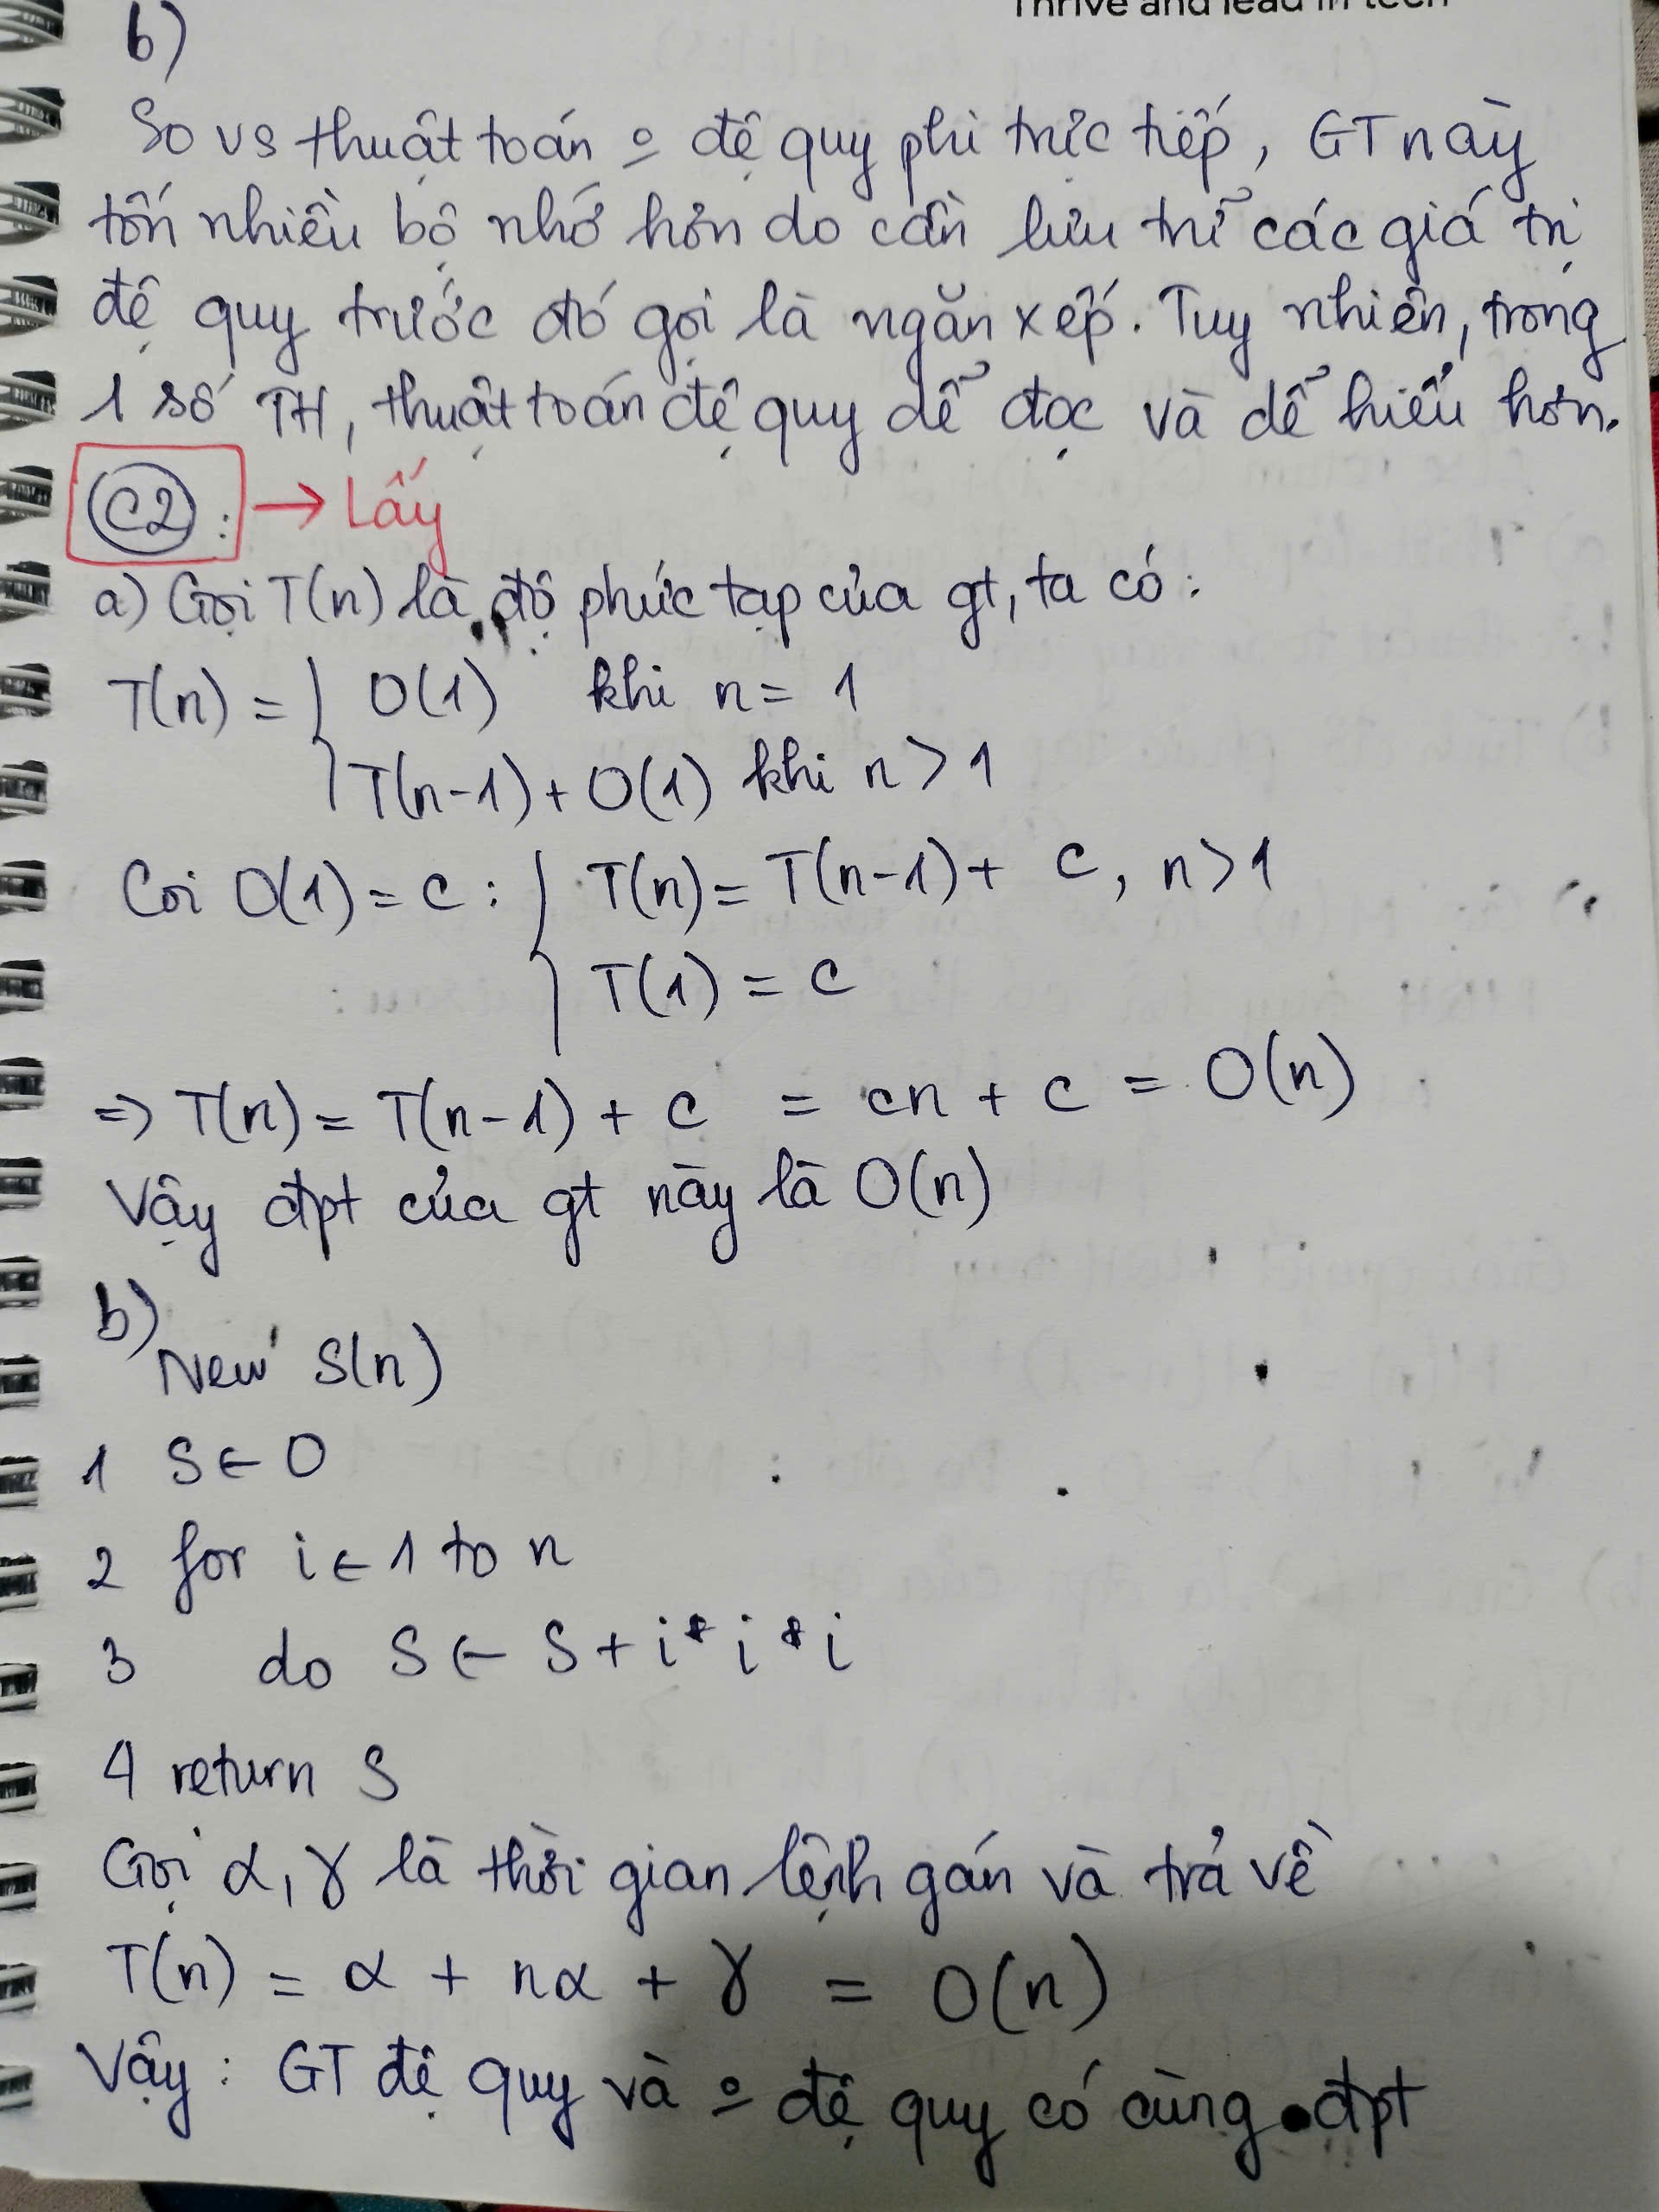 Thrive and lead in tech
b)
So vs thuật toán o đệ quy phi trực tiếp, GT này
tốn nhiều bộ nhớ hơn do cần lưu trữ các giá trị
đệ quy trước đó gọi là ngăn xếp. Tuy nhiên, trong
1 số TH, thuật toán đệ quy dễ đọc và dễ hiểu hơn.
C2: → Lấy
a) Gọi T(n) là độ phức tạp của gt, ta có:
T(n) = { O(1) khi n = 1
T(n-1) + O(1) khi n > 1
Coi O(1) = c : { T(n) = T(n-1) + c, n > 1
T(1) = c
=> T(n) = T(n-1) + c = cn + c = O(n)
Vậy đpt của gt này là O(n)
b)
New S(n)
1 S ← 0
2 for i ← 1 to n
3 do S ← S + i * i * i
4 return S
Gọi α, γ là thời gian lệnh gán và trả về
T(n) = α + nα + γ = O(n)
Vậy: GT đệ quy và o đệ quy có cùng đpt